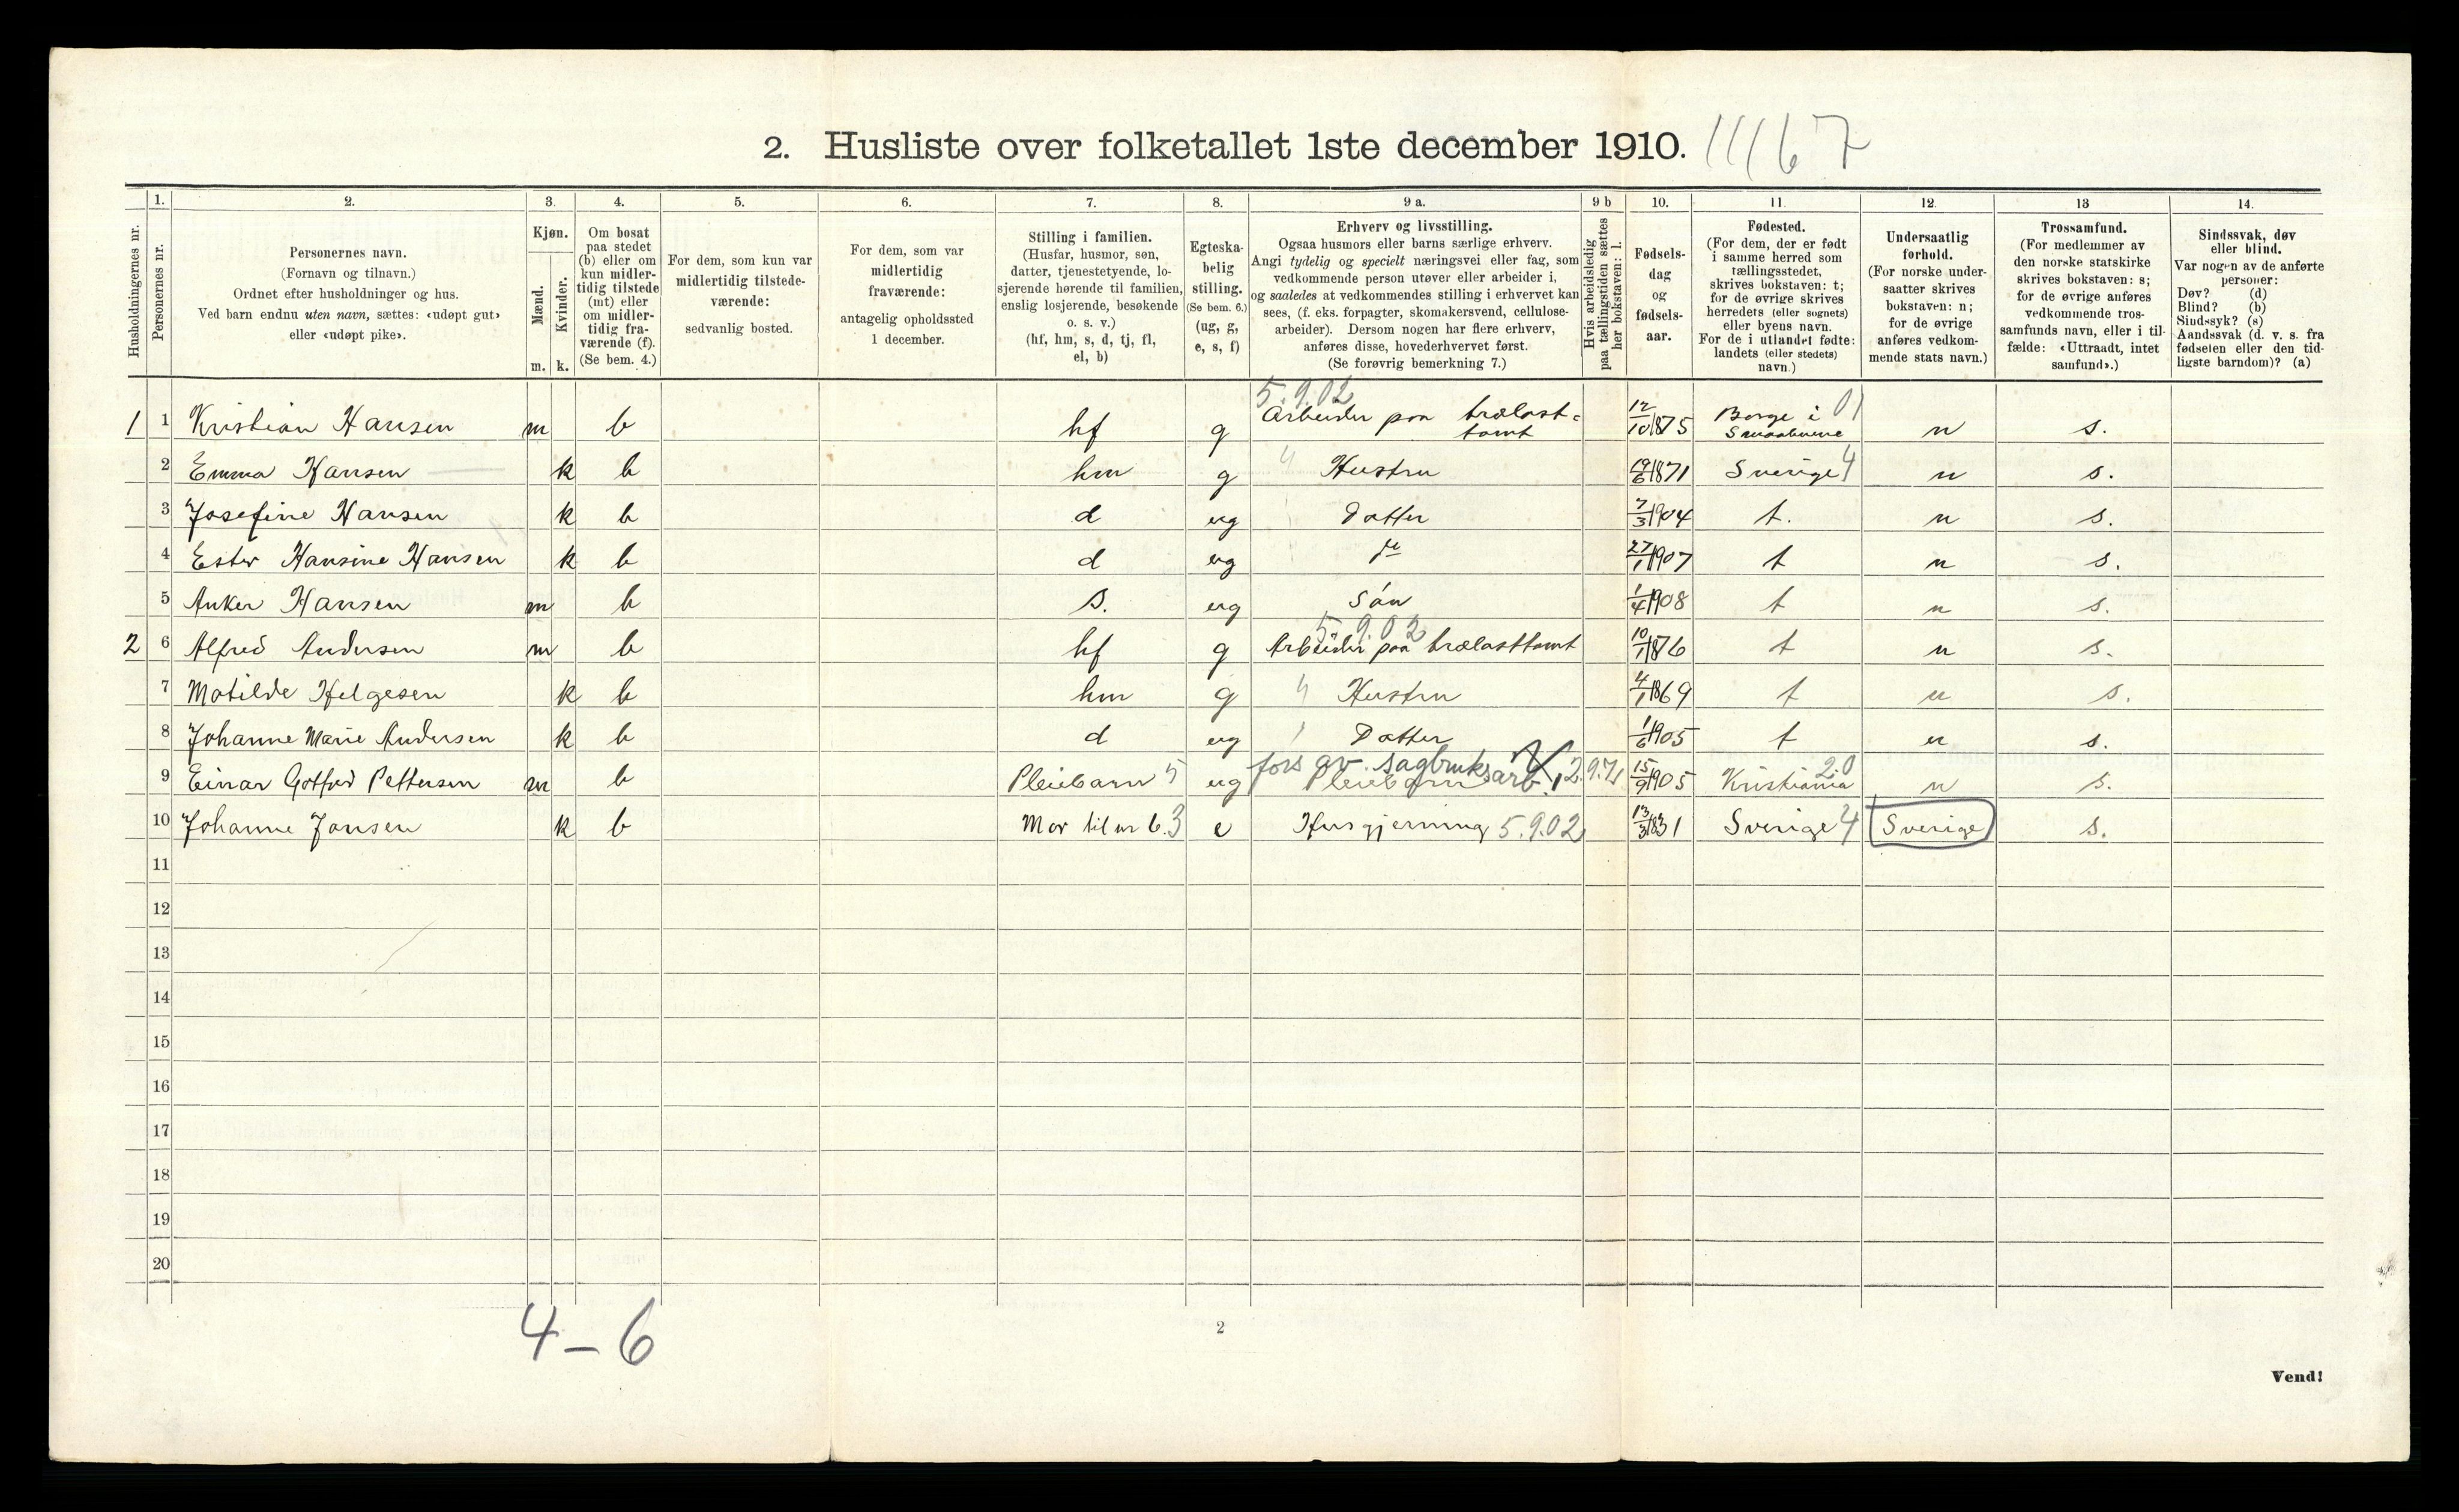 2. Husliste over folketallet 1ste december 1910. 11167
Husholdningernes nr.
1.
Personernes nr.
2.
Personernes navn.
(Fornavn og tilnavn.)
Ordnet efter husholdninger og hus.
Ved barn endnu uten navn, sættes: «udøpt gut»
eller «udøpt pike».
3.
Kjøn.
Mænd.
Kvinder.
m. k.
4.
Om bosat
paa stedet
(b) eller om
kun midler-
tidig tilstede
(mt) eller
om midler-
tidig fra-
værende (f).
(Se bem. 4.)
5.
For dem, som kun var
midlertidig tilstede-
værende:
sedvanlig bosted.
6.
For dem, som var
midlertidig
fraværende:
antagelig opholdssted
1 december.
7.
Stilling i familien.
(Husfar, husmor, søn,
datter, tjenestetyende, lo-
sjerende hørende til familien,
enslig losjerende, besøkende
o. s. v.)
(hf, hm, s, d, tj, fl,
el, b)
8.
Egteska-
belig
stilling.
(Se bem. 6.)
(ug, g,
e, s, f)
9 a.
Erhverv og livsstilling.
Ogsaa husmors eller barns særlige erhverv.
Angi tydelig og specielt næringsvei eller fag, som
vedkommende person utøver eller arbeider i,
og saaledes at vedkommendes stilling i erhvervet kan
sees, (f. eks. forpagter, skomakersvend, cellulose-
arbeider). Dersom nogen har flere erhverv,
anføres disse, hovederhvervet først.
(Se forøvrig bemerkning 7.)
9 b
Hvis arbeidsledig
paa tællingstiden sættes
her bokstaven: l.
10.
Fødsels-
dag
og
fødsels-
aar.
11.
Fødested.
(For dem, der er født
i samme herred som
tællingsstedet,
skrives bokstaven: t;
for de øvrige skrives
herredets (eller sognets)
eller byens navn.
For de i utlandet fødte:
landets (eller stedets)
navn.)
12.
Undersaatlig
forhold.
(For norske under-
saatter skrives
bokstaven: n;
for de øvrige
anføres vedkom-
mende stats navn.)
13
Trossamfund.
(For medlemmer av
den norske statskirke
skrives bokstaven: s;
for de øvrige anføres
vedkommende tros-
samfunds navn, eller i til-
fælde: «Uttraadt, intet
samfund».)
14.
Sindssvak, døv
eller blind.
Var nogen av de anførte
personer:
Døv? (d)
Blind? (b)
Sindssyk? (s)
Aandssvak (d. v. s. fra
fødselen eller den tid-
ligste barndom)? (a)
5.9.02
1 1 Kristian Hansen m b hf g Arbeider paa trælast= tomt 12/10 1875 Borge i Smaalenene 01 n s.
2 Emma Hansen k b hm g 4 Hustru 19/6 1871 Sverige 4 n s.
3 Josefine Hansen k b d ug Datter 7/3 1904 t. n s.
4 Ester Hansine Hansen k b d ug do 27/1 1907 t n s.
5 Anker Hansen m b s. ug Søn 1/4 1908 t n s.
5 9 0 2
2 6 Alfred Andersen m b hf g Arbeider paa trælasttomt 10/1 1876 t n s.
7 Matilde Helgesen k b hm g 4 Hustru 4/1 1869 t n s.
8 Johanne Marie Andersen k b d ug Datter 1/6 1905 t n s.
fors av. sagbruksarb. 2.9.71
9 Einar Gotfred Pettersen m b Pleiebarn 5 ug Pleiebarn 15/9 1905 Kristiania 20 n s.
10 Johanne Jansen k b Mor til nr 6. 3 e Husgjerning 5.9.02 13/3 1831 Sverige 4 Sverige s.
11
12
13
14
15
16
17
18
19
20
4 - 6
2
Vend!